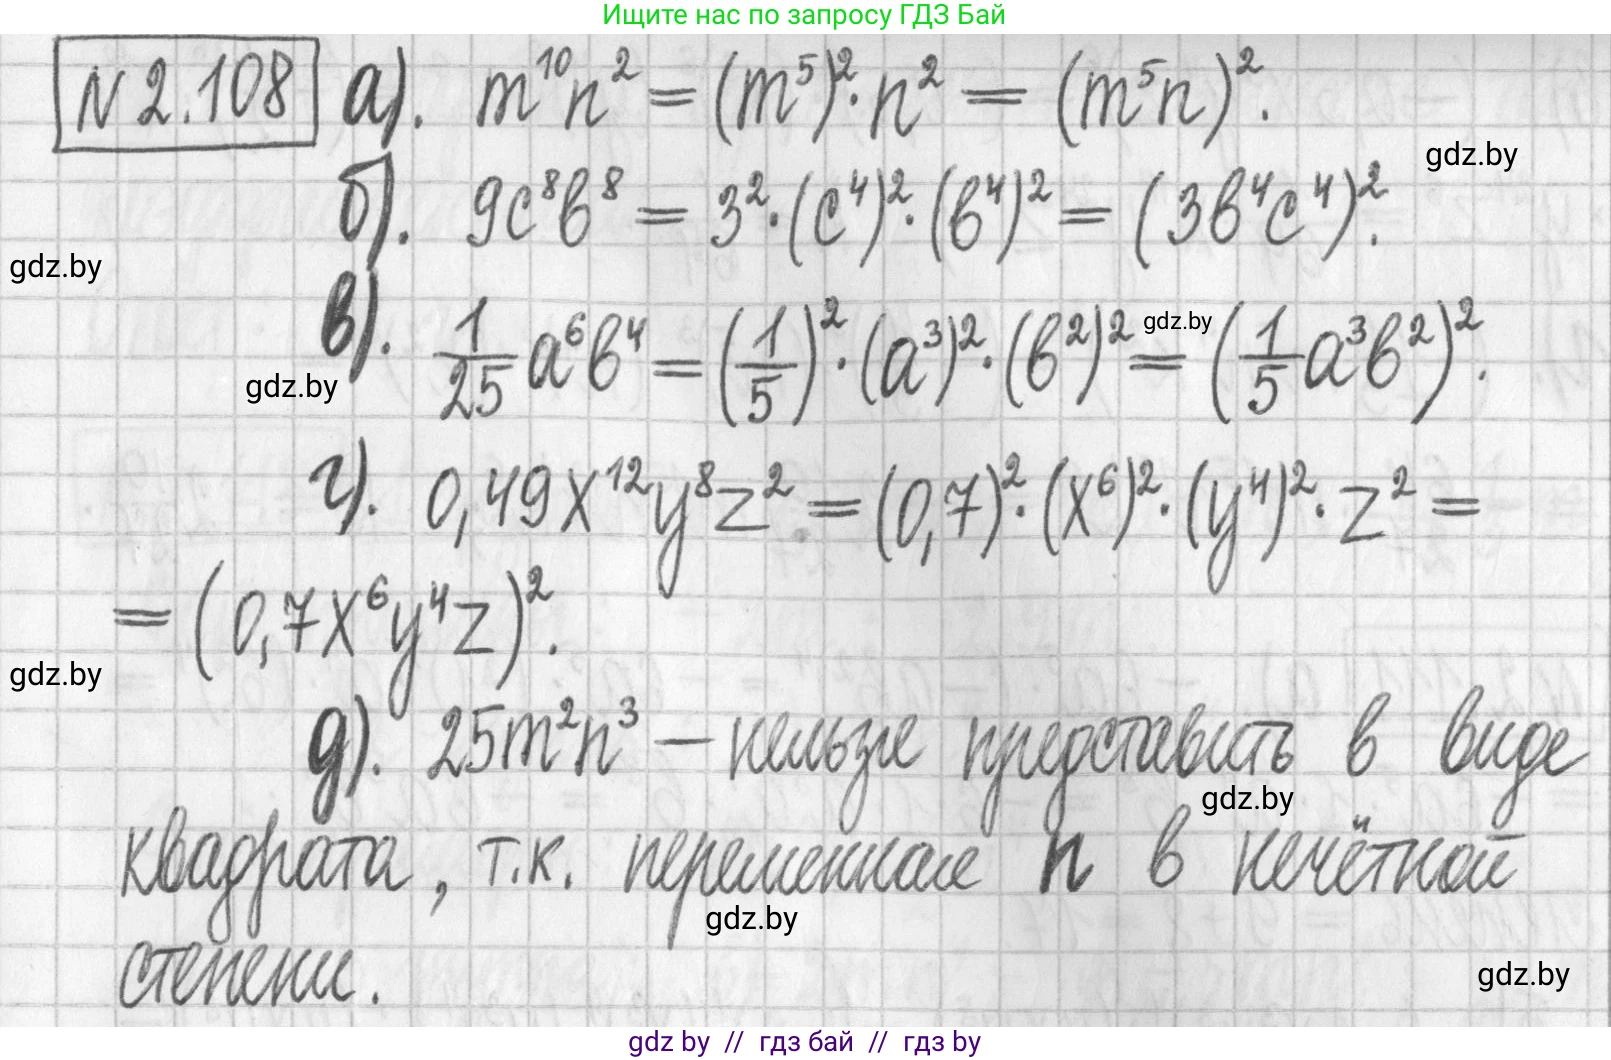 Ищите нас по запросу ГДЗ Бай
N 2.108 а). m¹⁰n² = (m⁵)²·n² = (m⁵n)².
gdz.by
б). 9c⁸b⁸ = 3²·(c⁴)²·(b⁴)² = (3b⁴c⁴)².
gdz.by
в). 1/25 a⁶b⁴ = (1/5)²·(a³)²·(b²)² = (1/5 a³b²)².
gdz.by
gdz.by
г). 0,49x¹²y⁸z² = (0,7)²·(x⁶)²·(y⁴)²·z² =
= (0,7x⁶y⁴z)².
gdz.by
д). 25m²n³ — нельзя представить в виде
gdz.by
квадрата, т.к. переменная n в нечётной
gdz.by
степени.
gdz.by
gdz by // гдз бай // гдз by